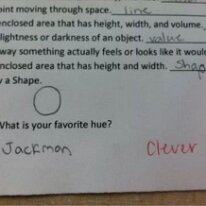 oint moving through space. line
enclosed area that has height, width, and volume.
lightness or darkness of an object. value
way something actually feels or looks like it would
enclosed area that has height and width. Shap
w a Shape.
What is your favorite hue?
Jackman Clever